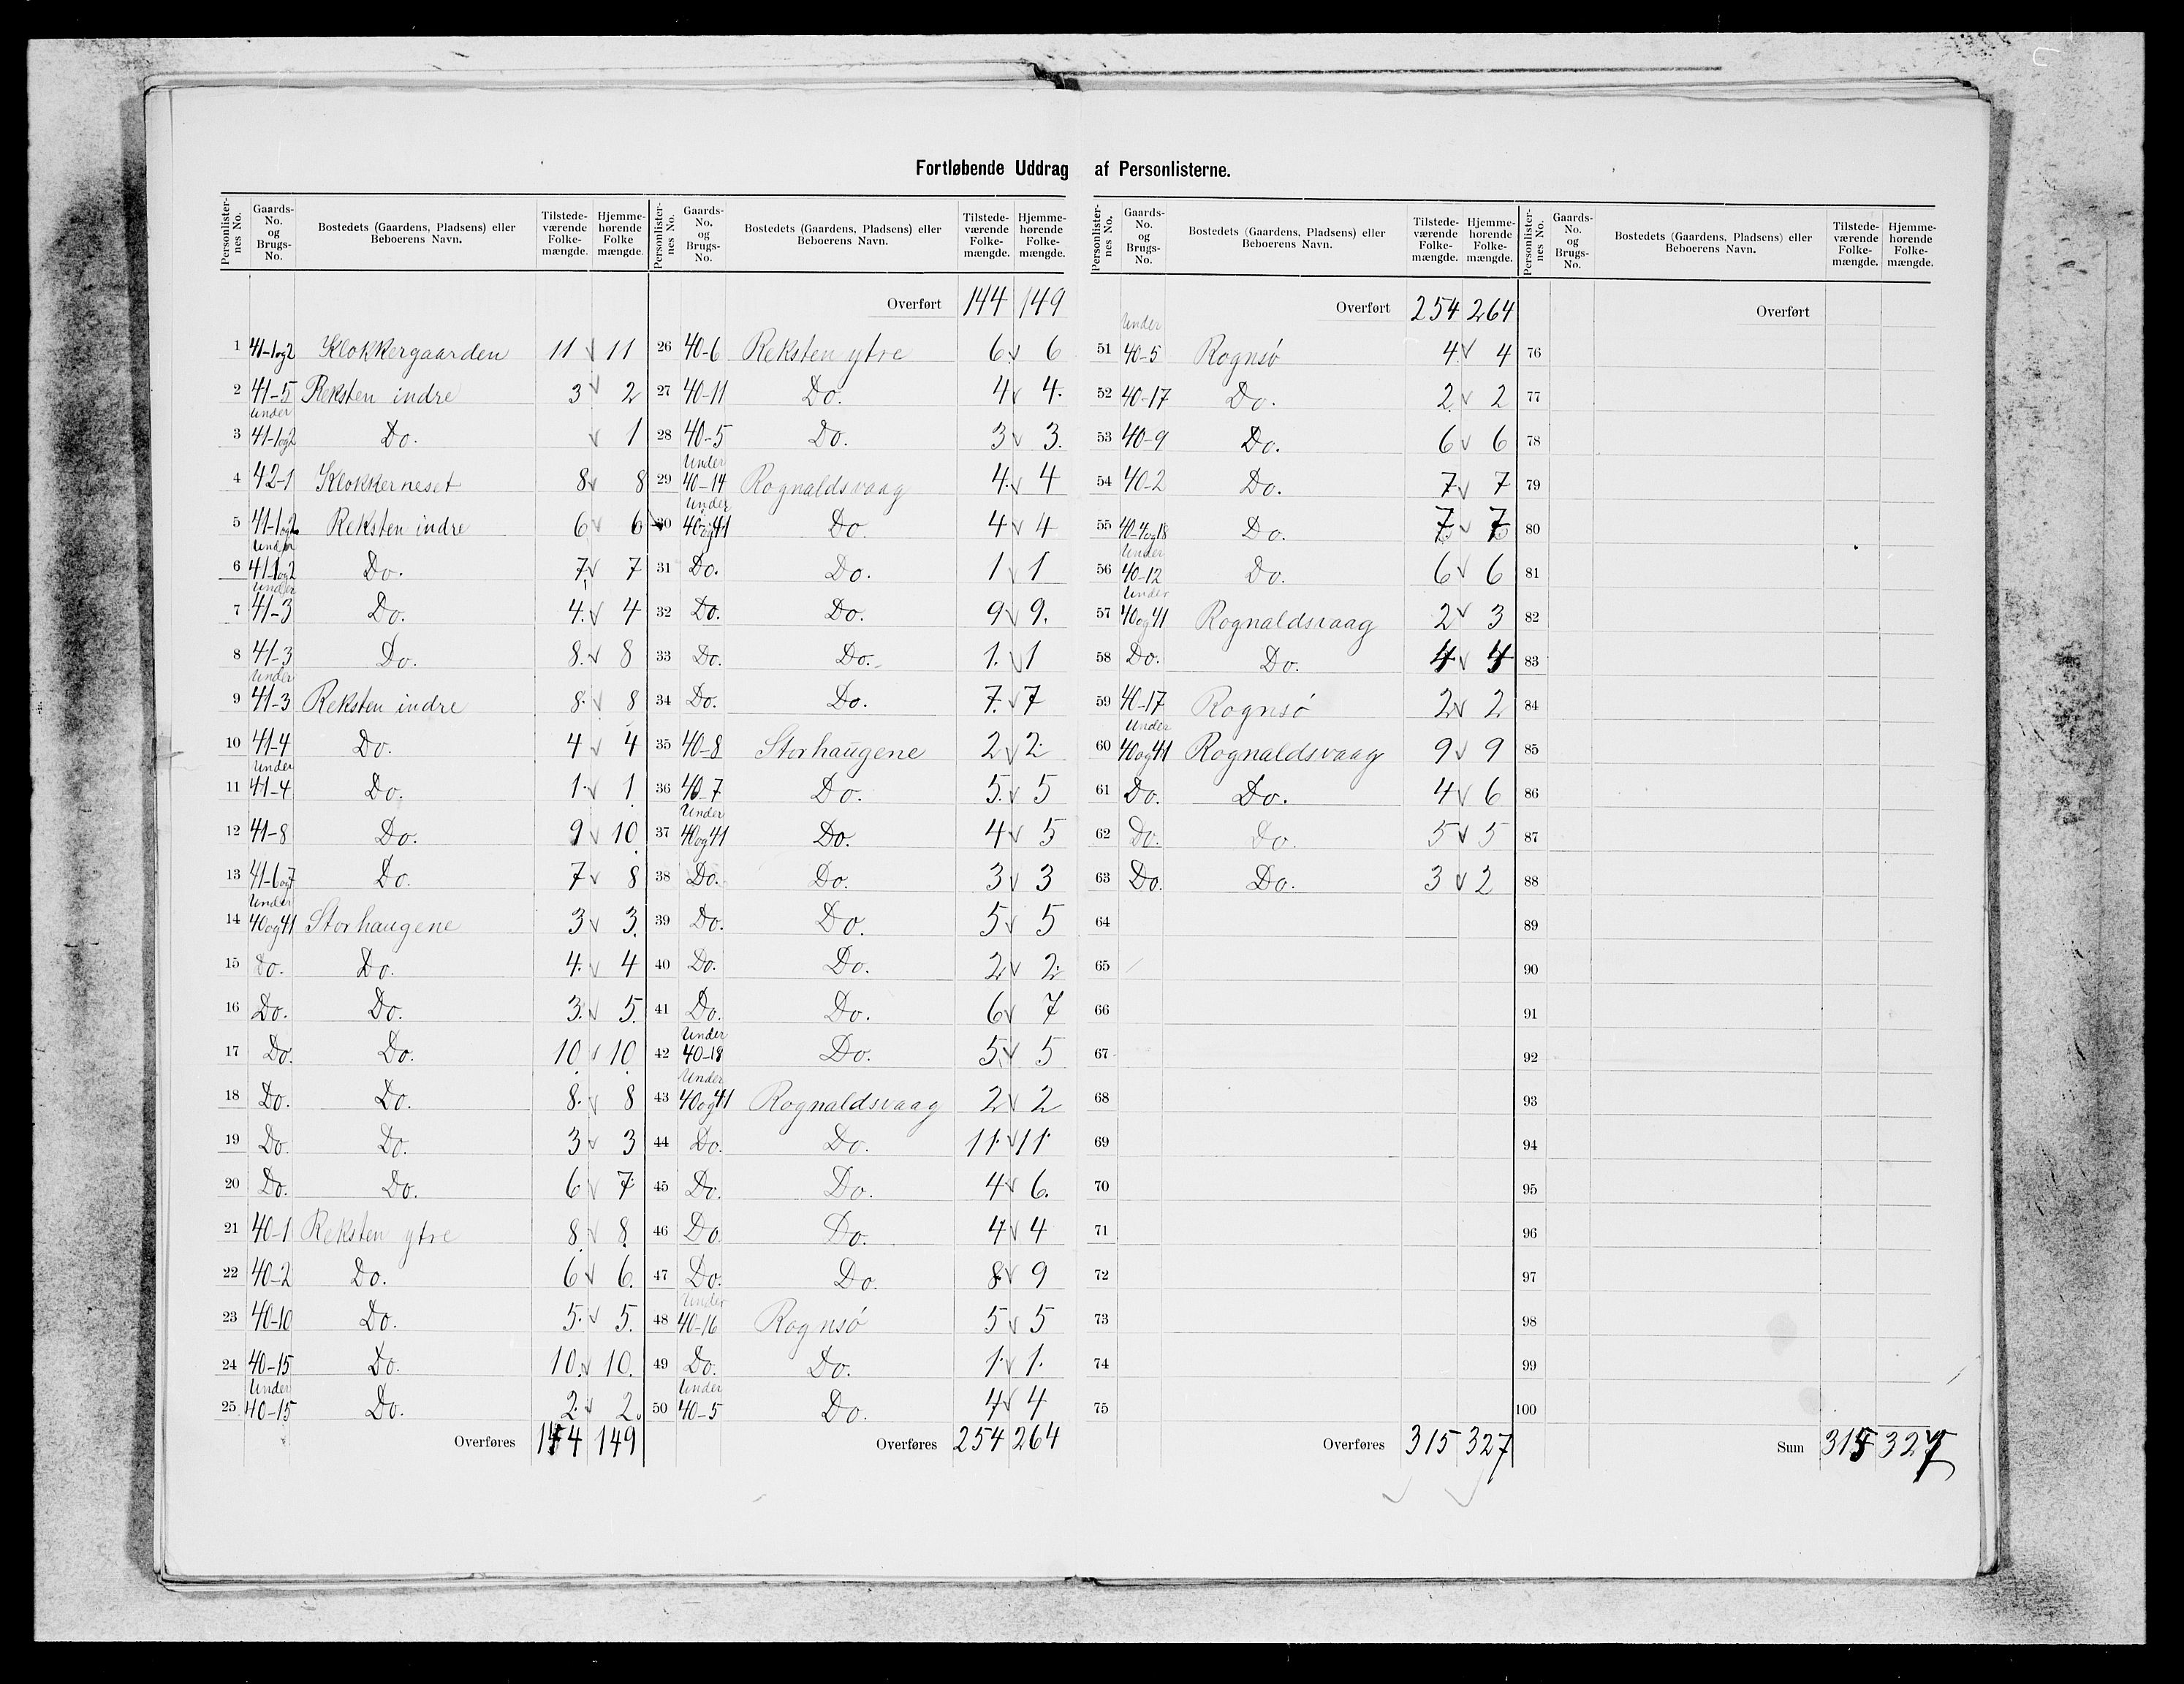 Fortløbende Uddrag af Personlisterne.
Personlisternes No. Gaards-No. og Brugs-No. Bostedets (Gaardens, Pladsens) eller Beboerens Navn. Tilstedeværende Folkemængde. Hjemmehørende Folkemængde.
1 41-1og2 Klokkergaarden 11 v 11
2 41-5 Reksten indre 3 v 2
3 Under 41-1og2 Do. v 1
4 42-1 Klokkerneset 8 v 8
5 41-1og2 Reksten indre 6 v 6
6 Under 41-1og2 Do. 7 v 7
7 Under 41-3 Do. 4. v 4
8 41-3 Do. 8. v 8
9 Under 41-3 Reksten indre 8. v 8
10 41-4 Do. 4 v 4
11 Under 41-4 Do. 1. v 1
12 41-8 Do. 9 v 10
13 41-6og7 Do. 7 v 8
14 Under 40og41 Storhaugene 3 v 3.
15 Do. Do. 4. v 4
16 Do. Do. 3. v 5.
17 Do. Do. 10 v 10
18 Do. Do. 8. v 8
19 Do. Do. 3 v 3
20 Do. Do. 6 v 7
21 40-1 Reksten ytre 8 v 8
22 40-2 Do. 6 v 6.
23 40-10 Do. 5. v 5.
24 40-15 Do. 10. v 10.
25 Under 40-15 Do. 2. v 2.
Overføres 144 149
Personlisternes No. Gaards-No. og Brugs-No. Bostedets (Gaardens, Pladsens) eller Beboerens Navn. Tilstedeværende Folkemængde. Hjemmehørende Folkemængde.
Overført 144 149
26 40-6 Reksten ytre 6 v 6
27 40-11 Do. 4 v 4.
28 40-5 Do. 3 v 3.
29 Under 40-14 Rognaldsvaag 4. v 4
30 Under 40og41 Do. 4 v 4
31 Do. Do. 1 v 1
32 Do. Do. 9 v 9.
33 Do. Do. 1. v 1
34 Do. Do. 7. v 7
35 40-8 Storhaugene 2 v 2.
36 40-7 Do. 5. v 5
37 Under 40og41 Do. 4 v 5
38 Do. Do. 3 v 3
39 Do. Do. 5 v 5
40 Do. Do. 2 v 2.
41 Do. Do. 6 v 7
42 Under 40-18 Do. 5 v 5
43 Under 40og41 Rognaldsvaag 2 v 2
44 Do. Do. 11. v 11.
45 Do. Do. 4 v 6.
46 Do. Do. 4 v 4
47 Do. Do. 8 v 9
48 Under 40-16 Rognsø 5 v 5
49 Do. Do. 1. v 1.
50 Under 40-5 Do. 4 v 4
Overføres 254 264
Personlisternes No. Gaards-No. og Brugs-No. Bostedets (Gaardens, Pladsens) eller Beboerens Navn. Tilstedeværende Folkemængde. Hjemmehørende Folkemængde.
Overført 254 264
51 Under 40-5 Rognsø 4 v 4
52 40-17 Do. 2 v 2
53 40-9 Do. 6 v 6
54 40-2 Do. 7 v 7
55 40-4og18 Do. 7 v 7
56 Under 40-12 Do. 6 v 6
57 Under 40og41 Rognaldsvaag 2 v 3
58 Do. Do. 4 v 4
59 40-17 Rognsø 2 v 2
60 Under 40og41 Rognaldsvaag 9 v 9
61 Do. Do. 4 v 6
62 Do. Do. 5 v 5
63 Do. Do. 3 v 2
64
65
66
67
68
69
70
71
72
73
74
75
Overføres 315 327
Personlisternes No. Gaards-No. og Brugs-No. Bostedets (Gaardens, Pladsens) eller Beboerens Navn. Tilstedeværende Folkemængde. Hjemmehørende Folkemængde.
Overført
76
77
78
79
80
81
82
83
84
85
86
87
88
89
90
91
92
93
94
95
96
97
98
99
100
Sum 315 327